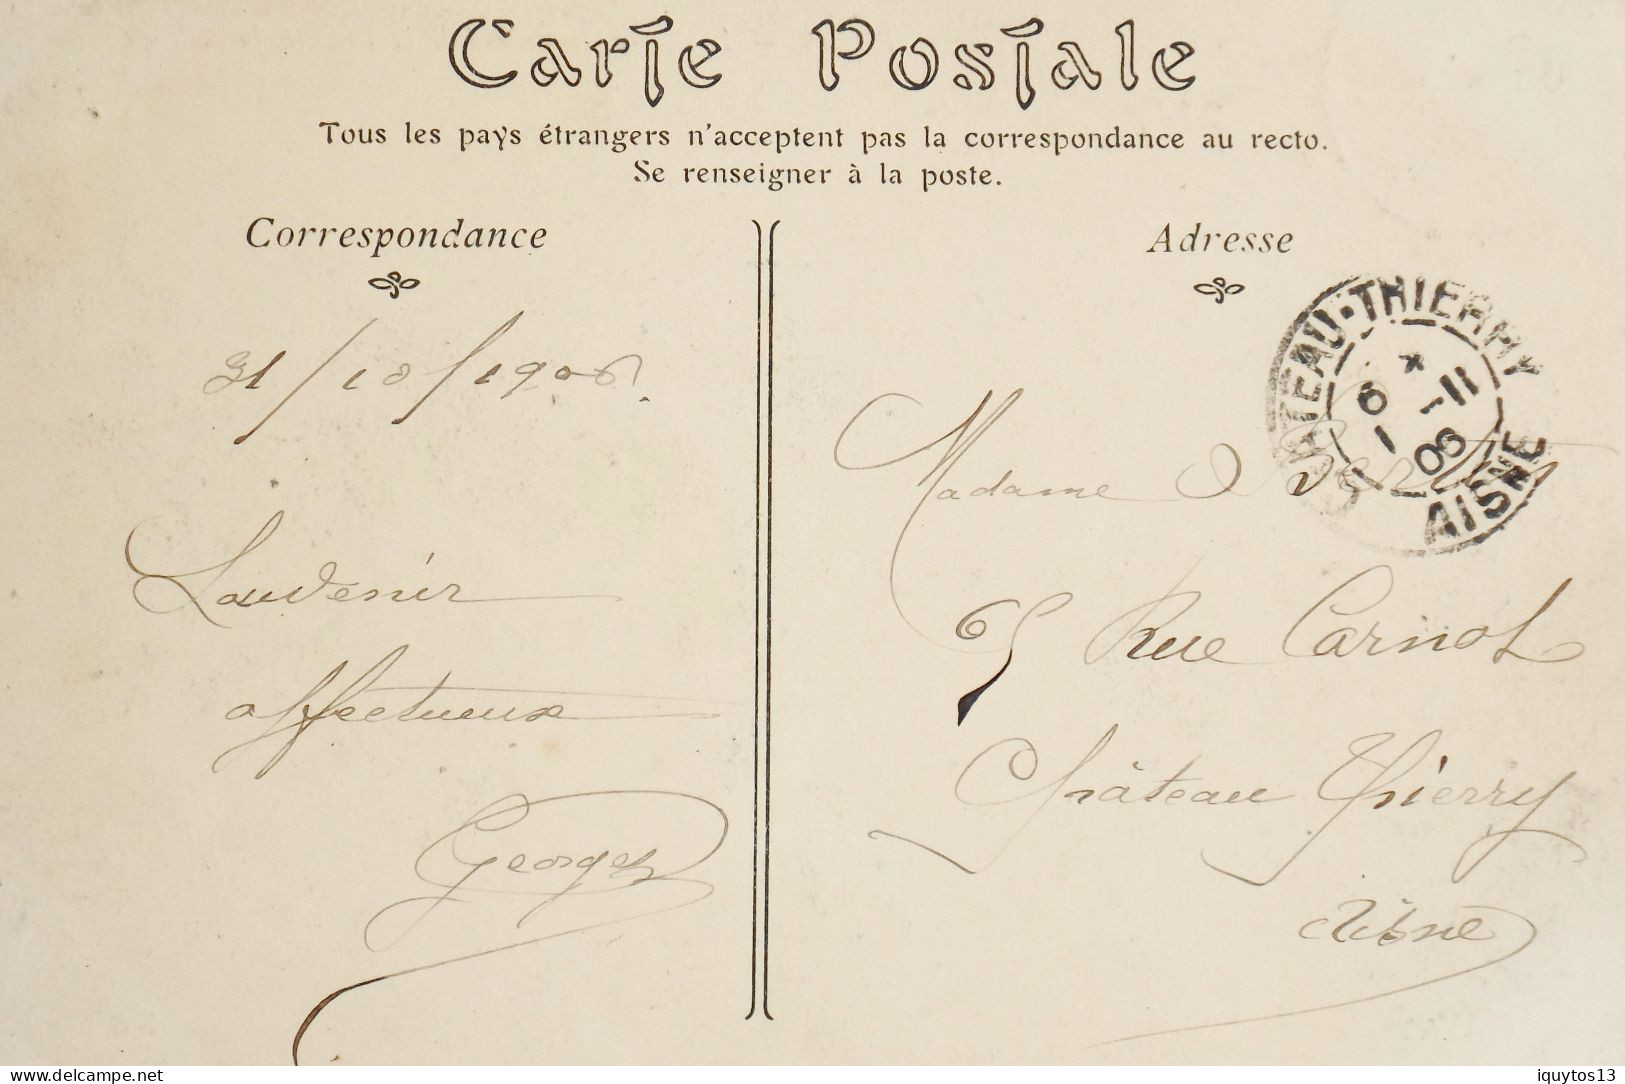 Carte Postale
Tous les pays étrangers n'acceptent pas la correspondance au recto.
Se renseigner à la poste.
Correspondance
Adresse
31/10/1906.
Souvenir
affectueux
Georges
CHATEAU-THIERRY
6 * 1 -11
06
AISNE
Madame
65 Rue Carnot
Château Thierry
Aisne
delcampe.net
iquytos13